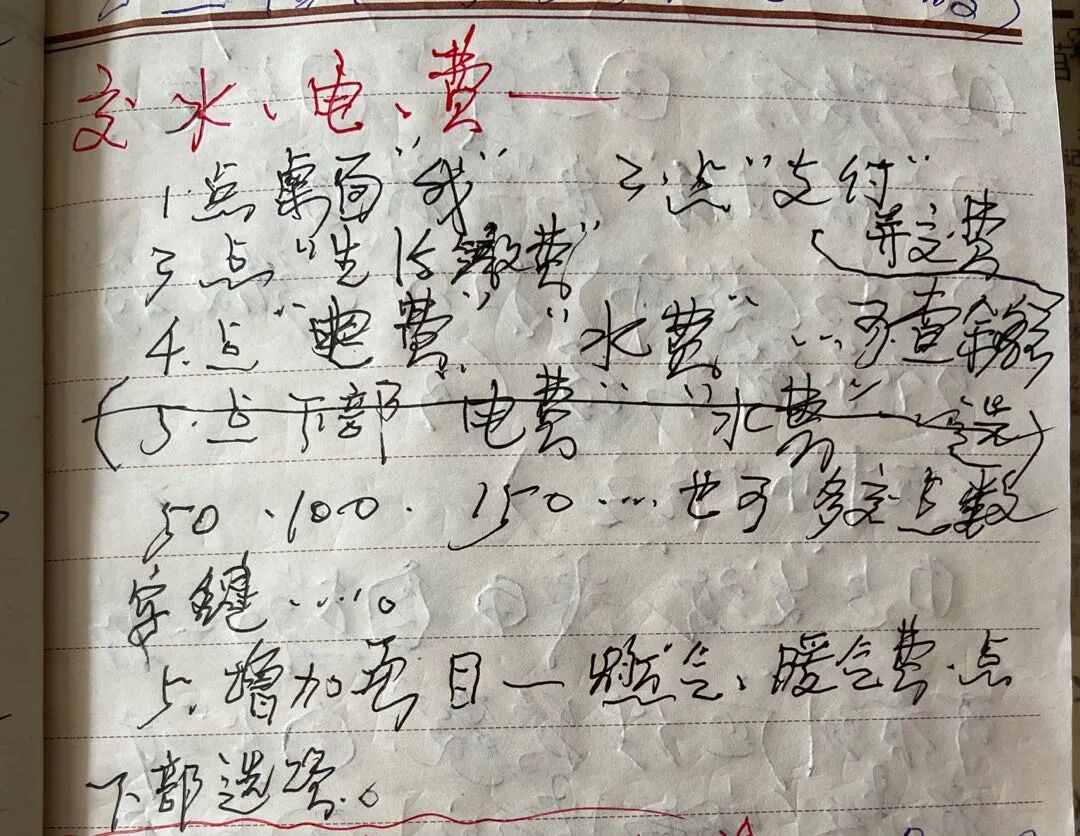 交水、电、费——
1.点桌面"我" 2.点"支付"
3点"生活缴费"
并交费
4.点"电费""水费"….可查余额
(5.点下部 电费""水费"选)
50.100.150….也可多交点数
字键….。
5.增加项目—燃气、暖气费.点
下部选项.。